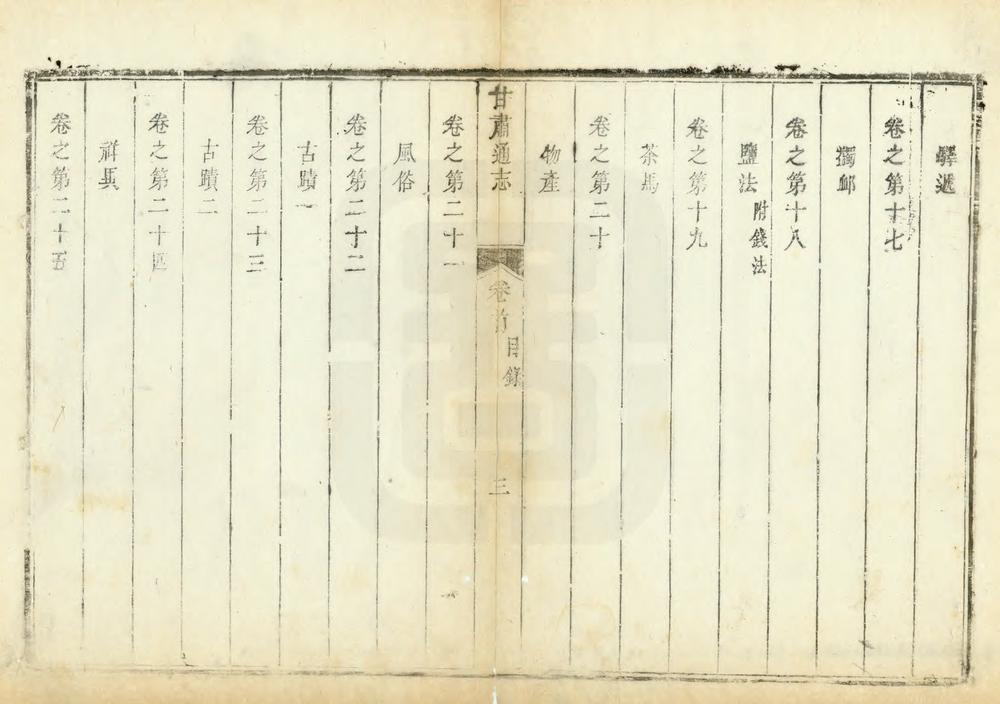 驛遞
卷之第十七
蠲䘏
卷之第十八
鹽法 附錢法
卷之第十九
茶馬
卷之第二十
物產
甘肅通志
卷首
目錄
三
卷之第二十一
風俗
卷之第二十二
古蹟一
卷之第二十三
古蹟二
卷之第二十四
祥異
卷之第二十五